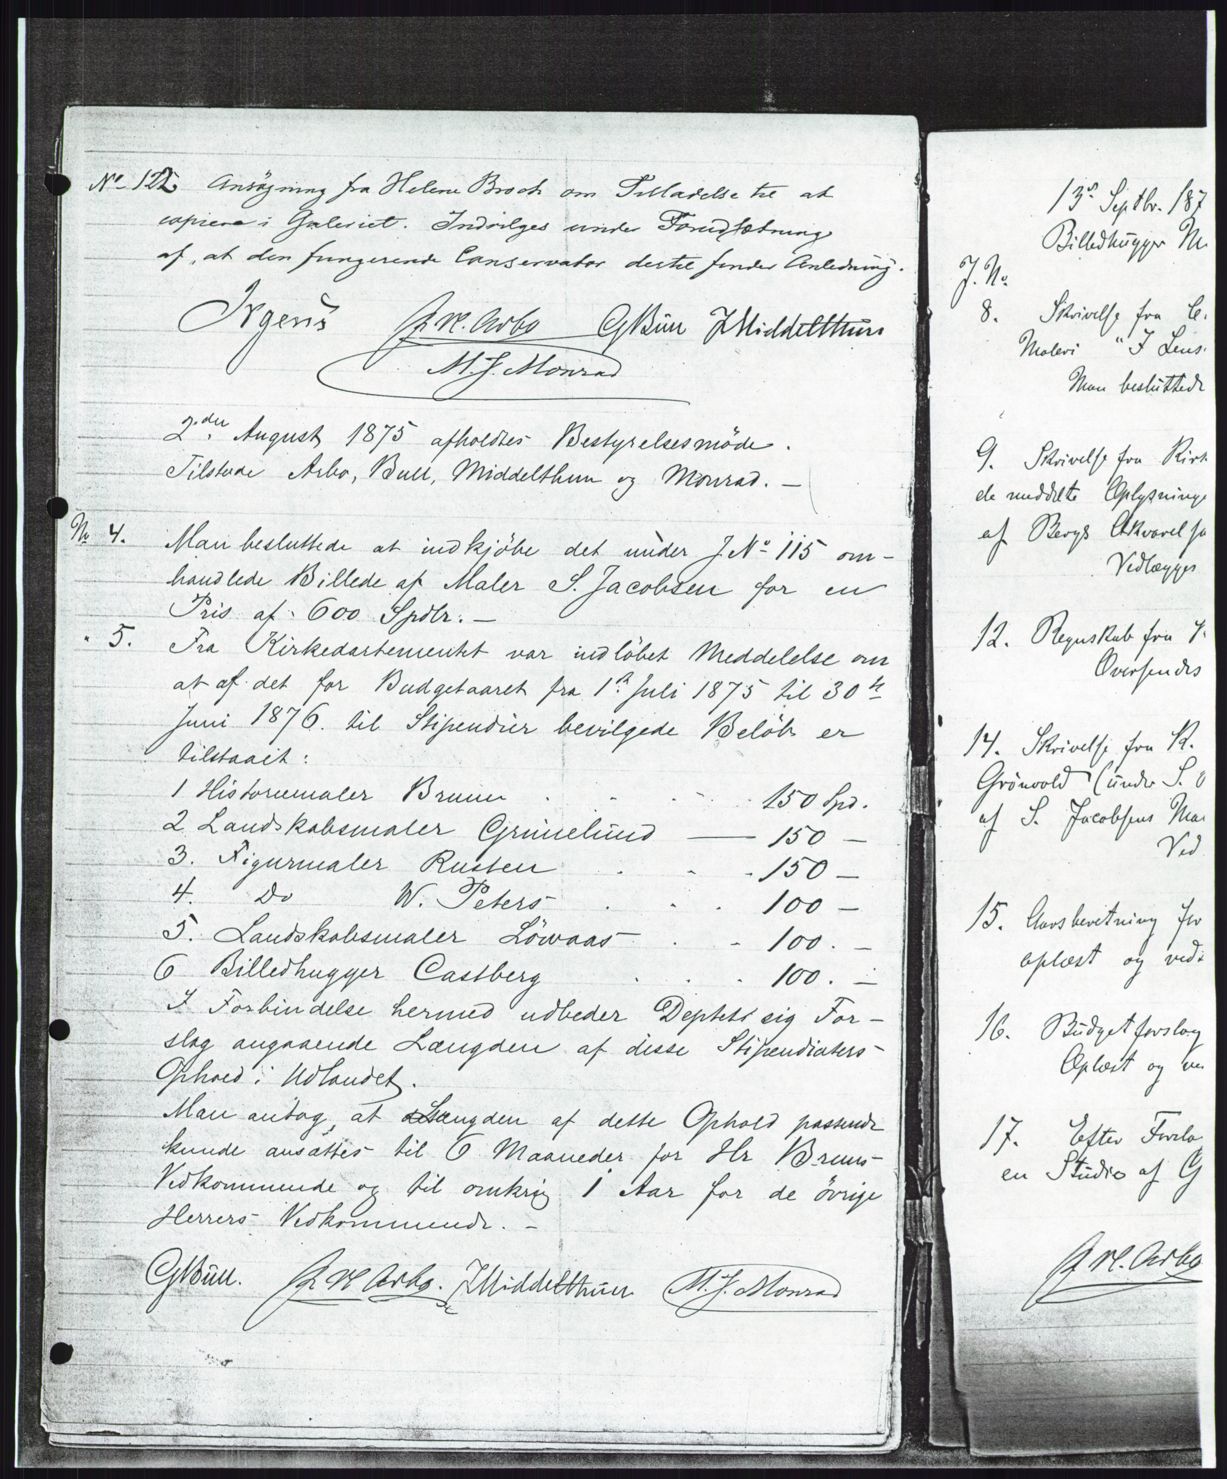 No 122 Ansøgning fra Helene Broch om Tilladelse til at
copiere i Galeriet. Indvilges under Forudsætning
af, at den fungerende Conservator dertil finder Anledning.
Irgens P. N. Arbo G Bull J Middelthun
M. J. Monrad
2den August 1875 afholdtes Bestyrelsesmöde.
Tilstede Arbo, Bull, Middelthun og Monrad. —
No 4. Man besluttede at indkjöbe det under J No 115 om-
handlede Billede af Maler S. Jacobsen for en
Pris af 600 Spdlr. —
" 5. Fra Kirkedartementet var indlöbet Meddelelse om
at af det for Budgetaaret fra 1ste Juli 1875 til 30te
Juni 1876 til Stipendier bevilgede Belöb er
tilstaaet:
1 Historiemaler Bruun . . . . 150 Spd.
2 Landskabsmaler Grimelund — 150 —
3. Figurmaler Rusten . . . 150 —
4. Do W. Peters . . . 100 —
5. Landskabsmaler Löwaas . . 100. —
6 Billedhugger Castberg . . . 100. —
I Forbindelse hermed udbeder Deptet sig For-
slag angaaende Længden af disse Stipendiaters
Ophold i Udlandet.
Man antog, at Længden af dette Ophold passende
kunde ansættes til 6 Maaneder for Hr Bruns
Vedkommende og til omkring 1 Aar for de övrige
Herrers Vedkommende. —
G Bull. P. N. Arbo. J Middelthun M. J. Monrad
13de Septbr. 187
Billedhugger M
J. No
8. Skrivelse fra C.
Maleri "I Lens
Man besluttede
9. Skrivelse fra Kirk
de meddelte Oplysninge
af Bergs Akvarel
Vedlægges
12. Regnskab fra
Oversendes
14. Skrivelse fra K.
Grönvold (under S.
af S. Jacobsens Ma
Ved
15. Aarsberetning for
oplæst og ved
16. Budgetforslag
Oplæst og ve
17. Efter Forsla
en Studie af G
P. N. Arbo